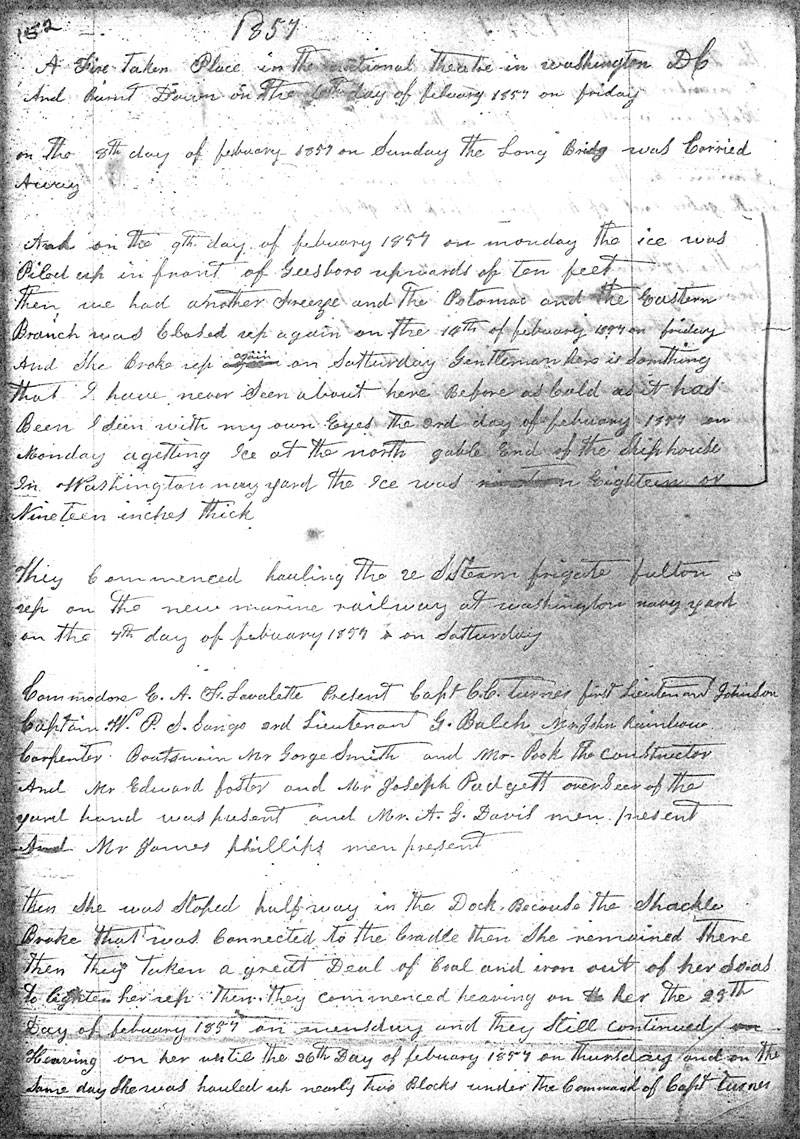 152 1857
A Fire Taken Place in the national theatre in washington DC
And Burnt Down on The day of febuary 1857 on friday
on the 8th day of febuary 1857 on Sunday the Long Bridg was Carried
Away
And on the 9th day of febuary 1857 on monday the ice was
Piled up in front of Geesboro upwards of Ten feet
Then we had another Freeze and the Potomac and the Eastern
Branch was Closed up again on the of febuary 1857 on friday
And She Broke up again on Satturday Gentleman here is Somthing
that I have never Seen about here Before as Cold as it has
Been I Seen with my own Eyes the day of febuary 1857 on
Monday agetting Ice at the north gable End of the Ship house
In Washington navy yard the Ice was Eighteen or
Nineteen inches thick
They Commenced hauling the Steam frigate fulton
up on the new marine railway at washington navy yard
on the 7th day of febuary 1857 on Satturday
Commodore E. A. F. Lavalette Present Capt C.C. turner first Lieutenant Johnson
Captain W. P. S. Sanger Lieutenant G. Balch Mr John Rainbow
Carpenter Boatswain Mr Gorge Smith and Mr. Pook the constructor
And Mr Edward foster and Mr Joseph Padgett over Seer of the
yard hand was present and Mr. A. G. Davis men present
And Mr James phillips men present
then She was Stoped half way in the Dock Because the Shackle
Broke that was Connected to the Cradle then She remained there
then they Taken a great Deal of Coal and iron out of her So as
to Lighten her up Then they commenced heaving on her the 25th
Day of febuary 1857 on wensday and they Still continued on
Heaving on her until the 26th Day of febuary 1857 on thursday and on the
Same day She was hauled up nearly two Blocks under the Command of Capt turner